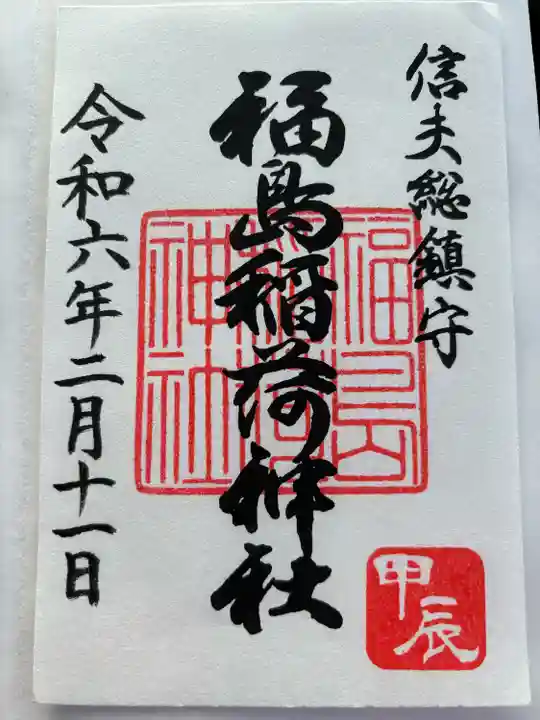 信夫総鎮守
福島稲荷神社
福島稲荷神社
令和六年二月十一日
甲辰